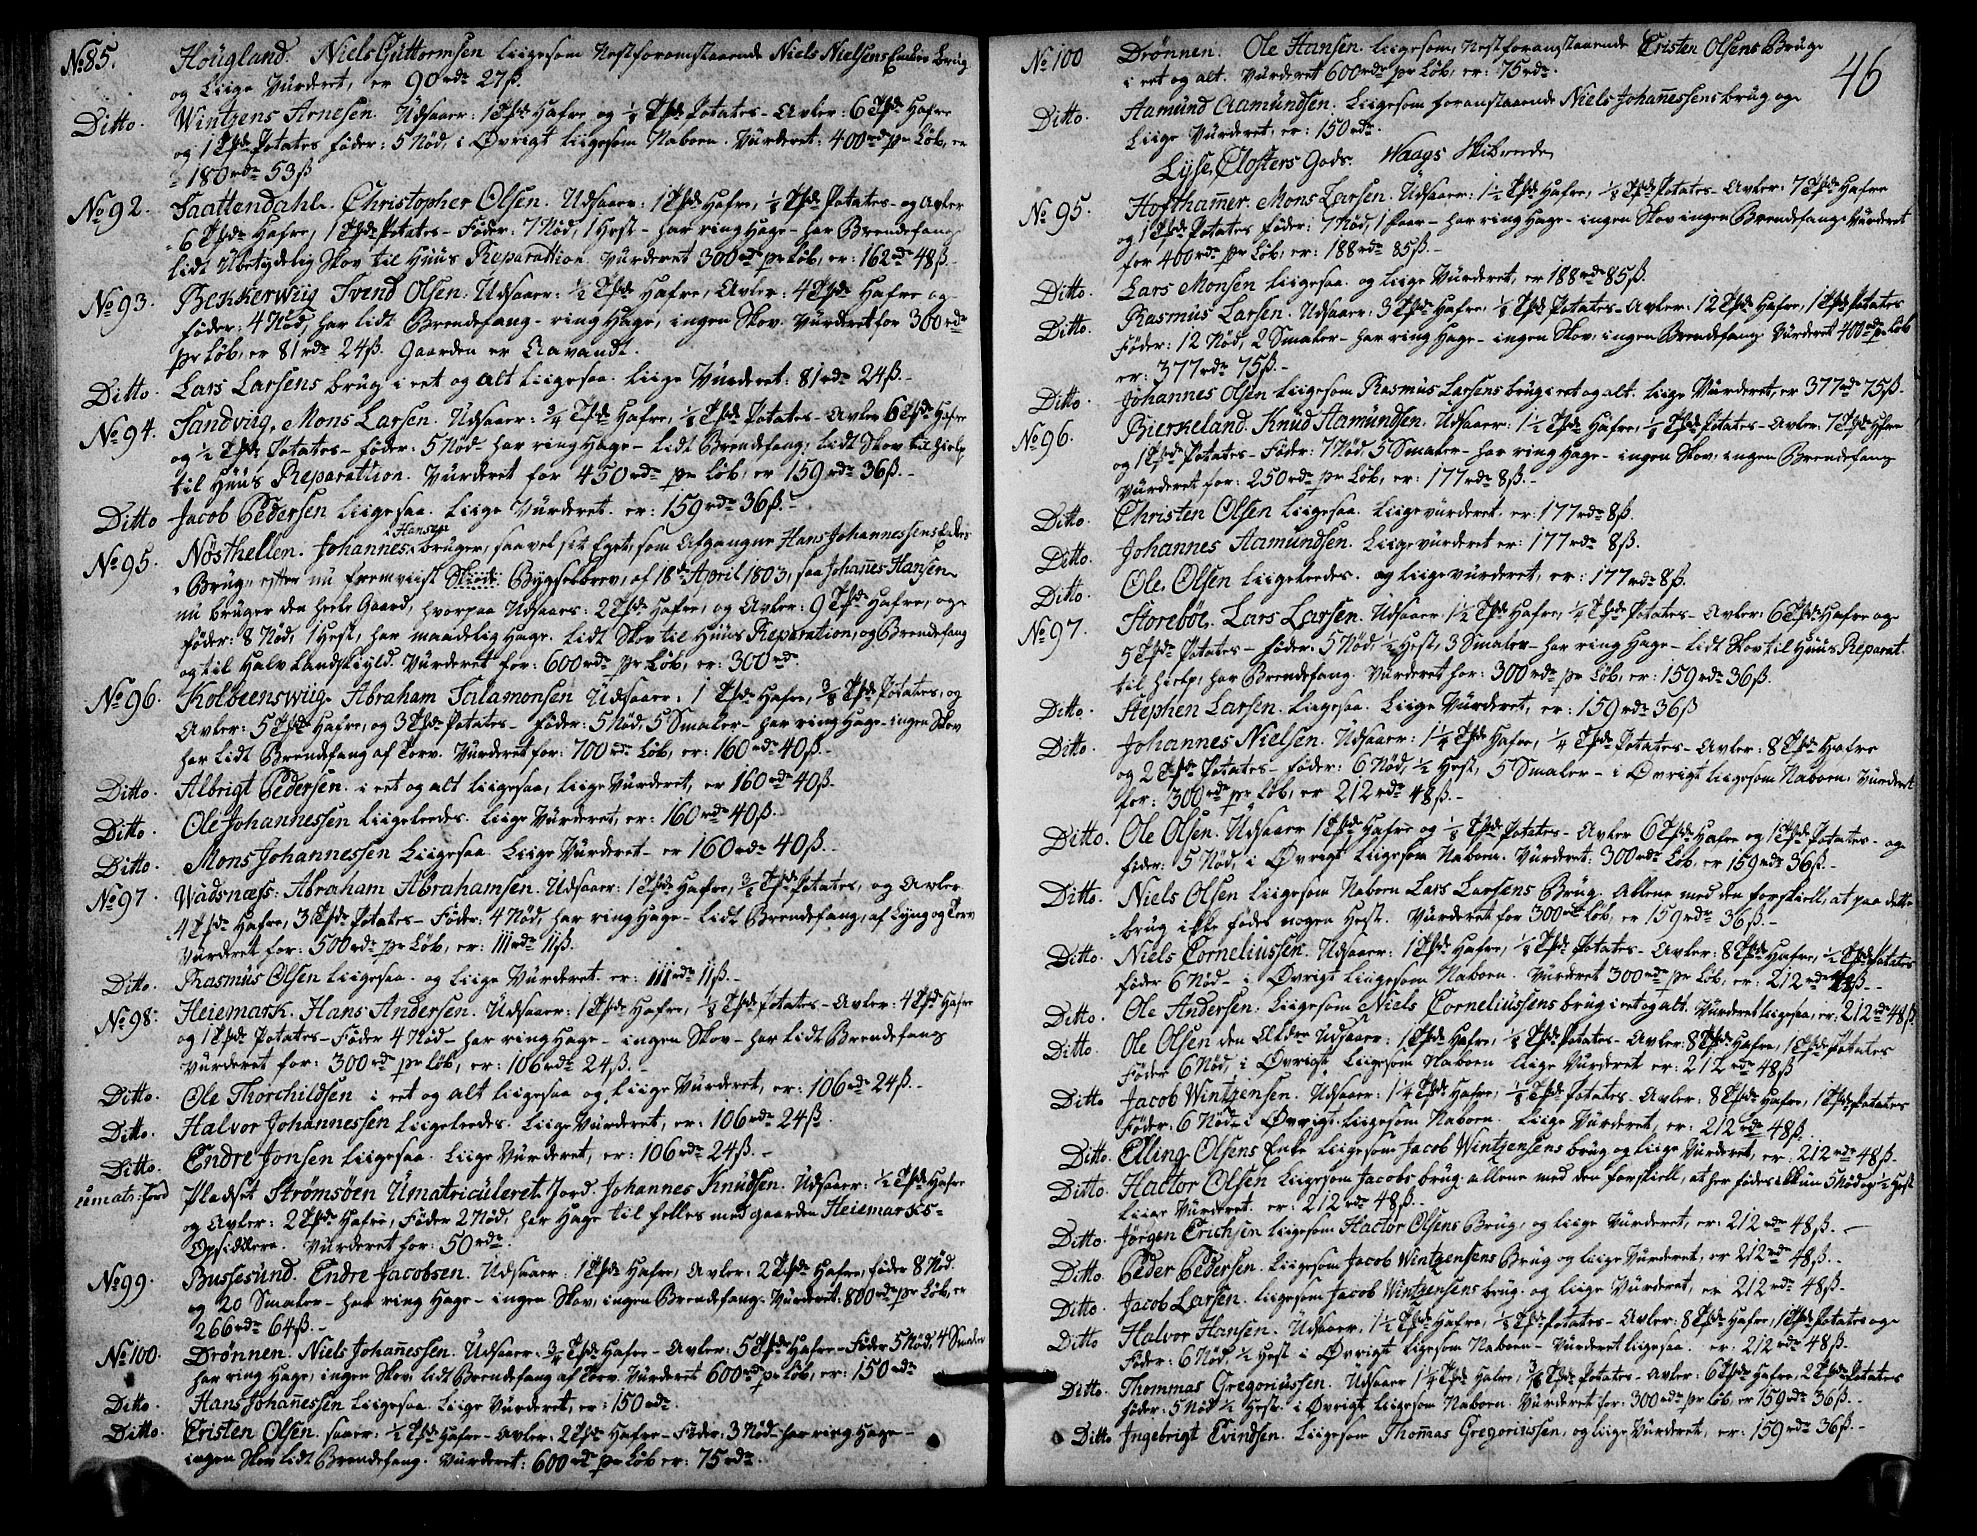 No 85. Hougland. Niels Guttormsen liigesom Nestforanstaaende Niels Nielsens Enkes brug
og Liige Vurderet, er 90 rdr 27 ß.
Ditto. Wintzens Arnesen. Udsaaer: 1 Tønde Hafre og 1/8 Tønde Potates - Avler: 6 Tønder Hafre
og 1 Tønde Potates föder: 5 Nöd, i Övrigt liigesom Naboen. Vurderet: 400 rdr pr Löb, er
180 rdr 53 ß
No 92. Saattendahle. Christopher Olsen. Udsaaer: 1 Tønde Hafre, 1/8 Tønde Potates - og Avler
6 Tønder Hafre, 1 Tønde Potates - Föder: 7 Nöd, 1 Hest - har ring Hage - har Brendefang
lidt Ubetydelig Skov til Huus Reparattion. Vurderet 300 rdr pr Löb, er: 162 rdr 48 ß.
No 93. Bekkerwiig Svend Olsen. Udsaaer: 1/2 Tønde Hafre, Avler: 4 Tønder Hafre og
föder: 4 Nöd, har lidt Brendefang - ring Hage, ingen Skov. Vurderet for 300 rdr
pr Löb, er 81 rdr 24 ß. Gaarden er Aavandt.
Ditto. Lars Larsens brug i eet og alt liigesaa. liige Vurderet: 81 rdr 24 ß.
No 94. Sandviig. Mons Larsen. Udsaaer: 3/4 Tønde Hafre, 1/8 Tønde Potates - Avler 6 Tønder Hafre
og 1/2 Tønde Potates - föder: 5 Nöd - har ring Hage - lidt Brendefang, lidt Skov til hielp
til Huus Reparation. Vurderet for 450 rdr pr Löb, er 159 rdr 36 ß.
Ditto Jacob Pedersen liigesaa. Liige Vurderet. er: 159 rdr 36 ß.
Hansen
No 95. Nösthellen. Johannes bruger, saavel sit Eget, som Afgangne Hans Johannessens Enkes
Brug, efter nu fremviist Bygselbrev, af 18de April 1803, saa Johanes Hansen
nu bruger den heele Gaard, hvorpaa Udsaaes: 2 Tønder Hafre, og Avler: 9 Tønder Hafre, og
föder: 8 Nöd, 1 Hest, har maadelig Hage. lidt Skov til Huus Reparation, og Brendefang
og til Halv Landskyld. Vurderet for: 600 rdr pr Löb, er: 300 rdr.
No 96. Kolbeenswiig. Abraham Salamonsen Udsaaer: 1 Tønde Hafre, 3/8 Tønde Potates, og
Avler: 5 Tønder Hafre, og 3 Tønder Potates - föder: 5 Nöd, 5 Smaler - har ring Hage - ingen Skov
har lidt Brendefang af Torv. Vurderet for: 700 rdr Löb, er: 160 rdr 40 ß.
Ditto. Albrigt Pedersen. i eet og alt liigesaa, liige Vurderet, er 160 rdr 40 ß.
Ditto. Ole Johannessen liigeleedes. liige Vurderet, er: 160 rdr 40 ß.
Ditto. Mons Johannessen Liigesaa Liige Vurderet - er 160 rdr 40 ß.
No 97. Wadsnæss. Abraham Abrahamsen. Udsaaer: 1 Tønde Hafre, 3/8 Tønde Potates, og Avler
4 Tønder Hafre, 3 Tønder Potates - Föder: 4 Nöd, har ring Hage - lidt Brendefang, af Lyng og Torv
Vurderet for: 500 rdr pr Löb, er: 111 rdr 11 ß.
Ditto. Rasmus Olsen liigesaa. og liige Vurderet. er: 111 rdr 11 ß.
No 98. Heiemark. Hans Andersen. Udsaaer: 1 Tønde Hafre, 1/8 Tønde Potates - Avler: 4 Tønder Hafre
og 1 Tønde Potates - Föder 4 Nöd - har ring Hage - ingen Skov - har lidt Brendefang
Vurderet for: 300 rdr pr Löb, er: 106 rdr 24 ß.
Ditto. Ole Thorchildsen i eet og alt liigesaa og liige Vurderet, er: 106 rdr 24 ß.
Ditto. Halvor Johannessen liigeleedes. liige Vurderet, er: 106 rdr 24 ß
Ditto. Endre Jonsen liigesaa. Liige Vurderet, er: 106 rdr 24 ß.
umats: Jord Pladset Strömsöen Umatriculeret Jord. Johannes Knudsen. Udsaaer: 1/2 Tønde Hafre
og Avler: 2 Tønder Hafre, Föder 2 Nöd, har Hage til felles med gaarden Heiemarks
Opsiddere. Vurderet for: 50 rdr.
No 99. Bussesund. Endre Jacobsen. Udsaaer: 1 Tønde Hafre, Avler: 2 Tønder Hafre, föder 8 Nöd.
og 20 Smaler - har ring Hage - ingen Skov, ingen Brendefang. Vurderet: 800 rdr pr Löb, er
266 rdr 64 ß.
No 100. Drönnen. Niels Johanessen. Udsaaer: 3/4 Tønde Hafre - Avler: 5 Tønder Hafre - Föder 5 Nöd, 4 Smaler
har ring Hage, ingen Skov lidt Brendefang af Torv. Vurderet 600 rdr pr Löb, er: 150 rdr
Ditto. Hans Johanessen liigesaa. liige Vurderet, er: 150 rdr.
Ditto. Cristen Olsen. saaer: 1/2 Tønde Hafre - Avler: 2 Tønder Hafre - Föder: 3 Nöd - har ring Hage
ingen Skov lidt Brendefang. Vurderet: 600 rdr pr Löb er: 75 rdr.
46
No 100 Drönnen. Ole Hansen. liigesom, Nestforanstaaende Cristen Olsens Brug
i eet og alt. Vurderet 600 rdr pr Löb, er: 75 rdr.
Ditto. Aamund Aamundsen. Liigesom foranstaaende Niels Johanessens brug og
Liige Vurderet, er: 150 rdr.
Lyse Closters Gods. Waags Skibrede
No 95. Hofthamer. Mons Larsen. Udsaaer: 1 1/2 Tønde Hafre, 1/8 Tønde Potates - Avler: 7 Tønder Hafre
og 1 Tønde Potates föder: 7 Nöd, 1 faar - har ring Hage - ingen Skov ingen Brendefang. Vurderet
for 400 rdr pr Löb, er: 188 rdr 85 ß.
Ditto. Lars Monsen liigesaa. og liige Vurderet, er 188 rdr 85 ß.
Ditto. Rasmus Larsen. Udsaaer: 3 Tønder Hafre, 1/8 Tønde Potates - Avler: 12 Tønder Hafre, 1 Tønde Potates
Föder: 12 Nöd, 2 Smaler - har ring Hage - ingen Skov, ingen Brendefang. Vurderet 400 rdr pr Löb
er: 377 rdr 75 ß.
Ditto. Johannes Olsen liigesom Rasmus Larsens brug i eet og alt. liige Vurderet, er 377 rdr 75 ß.
No 96. Bierkeland. Knud Aamundsen. Udsaaer: 1 1/2 Tønde Hafre, 1/8 Tønde Potates - Avler: 7 Tønder Hafre
og 1 Tønde Potates - Föder: 7 Nöd 5 Smaler - har ring Hage - ingen Skov, ingen Brendefang
Vurderet for: 250 rdr pr Löb, er: 177 rdr 8 ß.
Ditto. Christen Olsen liigesaa. Liige vurderet. er: 177 rdr 8 ß.
Ditto. Johannes Aamundsen. Liige vurderet er: 177 rdr 8 ß.
Ditto. Ole Olsen liigeleedes. og liige vurderet, er: 177 rdr 8 ß.
No 97. Storeböe. Lars Larsen. Udsaaer: 1 1/2 Tønde Hafre, 1/4 Tønde Potates - Avler: 6 Tønder Hafre og
5 Tønder Potates - föder: 5 Nöd, 1/2 Hest, 3 Smaler - har ring Hage - lidt Skov til Huus Reparat.
til hielp, har Brendefang. Vurderet for: 300 rdr pr Löb, er: 159 rdr 36 ß.
Ditto. Stephen Larsen. Liigesaa. Liige Vurderet, er: 159 rdr 36 ß
Ditto. Johannes Nielsen. Udsaaer: 1 1/4 Tønde Hafre, 1/4 Tønde Potates - Avler: 8 Tønder Hafre
og 2 Tønder Potates - föder: 6 Nöd, 1/2 Hest, 5 Smaler - i Övrigt liigesom Naboen. Vurderet
for: 300 rdr pr Löb, er 212 rdr 48 ß.
Ditto. Ole Olsen. Udsaaer 1 Tønde Hafre og 1/8 Tønde Potates - Avler 6 Tønder Hafre og 1 Tønde Potates - og
föder: 5 Nöd, i Övrigt liigesom Naboen. Vurderet: 300 rdr Löb, er 159 rdr 36 ß.
Ditto. Niels Olsen liigesom Naboen Lars Larsens Brug. allene med den forskiell, at paa dette
brug ikke födes nogen Hest. Vurderet for 300 rdr Löb, er 159 rdr 36 ß.
Ditto. Niels Corneliussen. Udsaaer: 1 Tønde Hafre, 1/8 Tønde Potates - Avler: 8 Tønder Hafre, 1/2 Tønde Potates
föder 6 Nöd - i Övrigt liigesom Naboen. Vurderet 300 rdr pr Löb, er: 212 rdr 48 ß.
Ditto. Ole Andersen. Liigesom Niels Corneliussens brug i eet og alt. Vurderet liigesaa, er: 212 rdr 48 ß.
Ditto. Ole Olsen den Ældre Udsaaer: 1 Tønde Hafre, 1/8 Tønde Potates - Avler: 8 Tønder Hafre, 1 Tønde Potates
Föder 6 Nöd, i Övrigt liigesom Naboen liige Vurderet er: 212 rdr 48 ß
Ditto Jacob Wintzensen. Udsaaer: 1 1/4 Tønde Hafre, 1/8 Tønde Potates - Avler: 8 Tønder Hafre, 1 Tønde Potates
Föder: 6 Nöd - i Övrigt liigesom Naboen. liige Vurderet, er: 212 rdr 48 ß.
Ditto. Elling Olsens Enke liigesom Jacob Wintzensens brug og liige Vurderet, er: 212 rdr 48 ß.
Ditto. Hactor Olsen Liigesom Jacobs brug allene med den forskiell, at her födes ikkun 5 Nöd og 1/2 Hest
Liige Vurderet. er: 212 rdr 48 ß.
Ditto. Jörgen Erichsen liigesom Hactor Olsens Brug, og liige Vurderet, er: 212 rdr 48 ß.
Ditto. Peder Pedersen. liigesom Jacob Wintzensens Brug og liige Vurderet, er 212 rdr 48 ß.
Ditto. Jacob Larsen. liigesom Jacob Wintzensens brug. og liige Vurderet, er 212 rdr 48 ß.
Ditto Halvor Hansen. Udsaaer, 1 1/2 Tønde Hafre, 1/8 Tønde Potates - Avler: 8 Tønder Hafre, 1 Tønde Potates og
Föder: 6 Nöd, 1/2 Hest i Övrigt liigesom Naboen - Vurderet liigesaa. er: 212 rdr 48 ß.
Ditto. Thommas Gregoriussen. Udsaaer 1 1/4 Tønde Hafre, 3/8 Tønde Potates - Avler: 6 Tønder Hafre, 2 Tønder Potates
föder: 5 Nöd 1/2 Hest. i Övrigt liigesom Naboen. Vurderet for: 300 rdr pr Löb, er 159 rdr 36 ß.
Ditto Ingebrigt Evindsen. Liigesom Thomas Gregoriussen, og liige Vurderet, er: 159 rdr 36 ß.